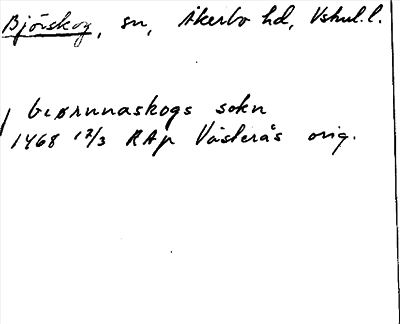 Björskog, sn, Åkerbo hd, Vstml.l.
biørnnaskogs sokn
1468 12/3 RAp Västerås orig.